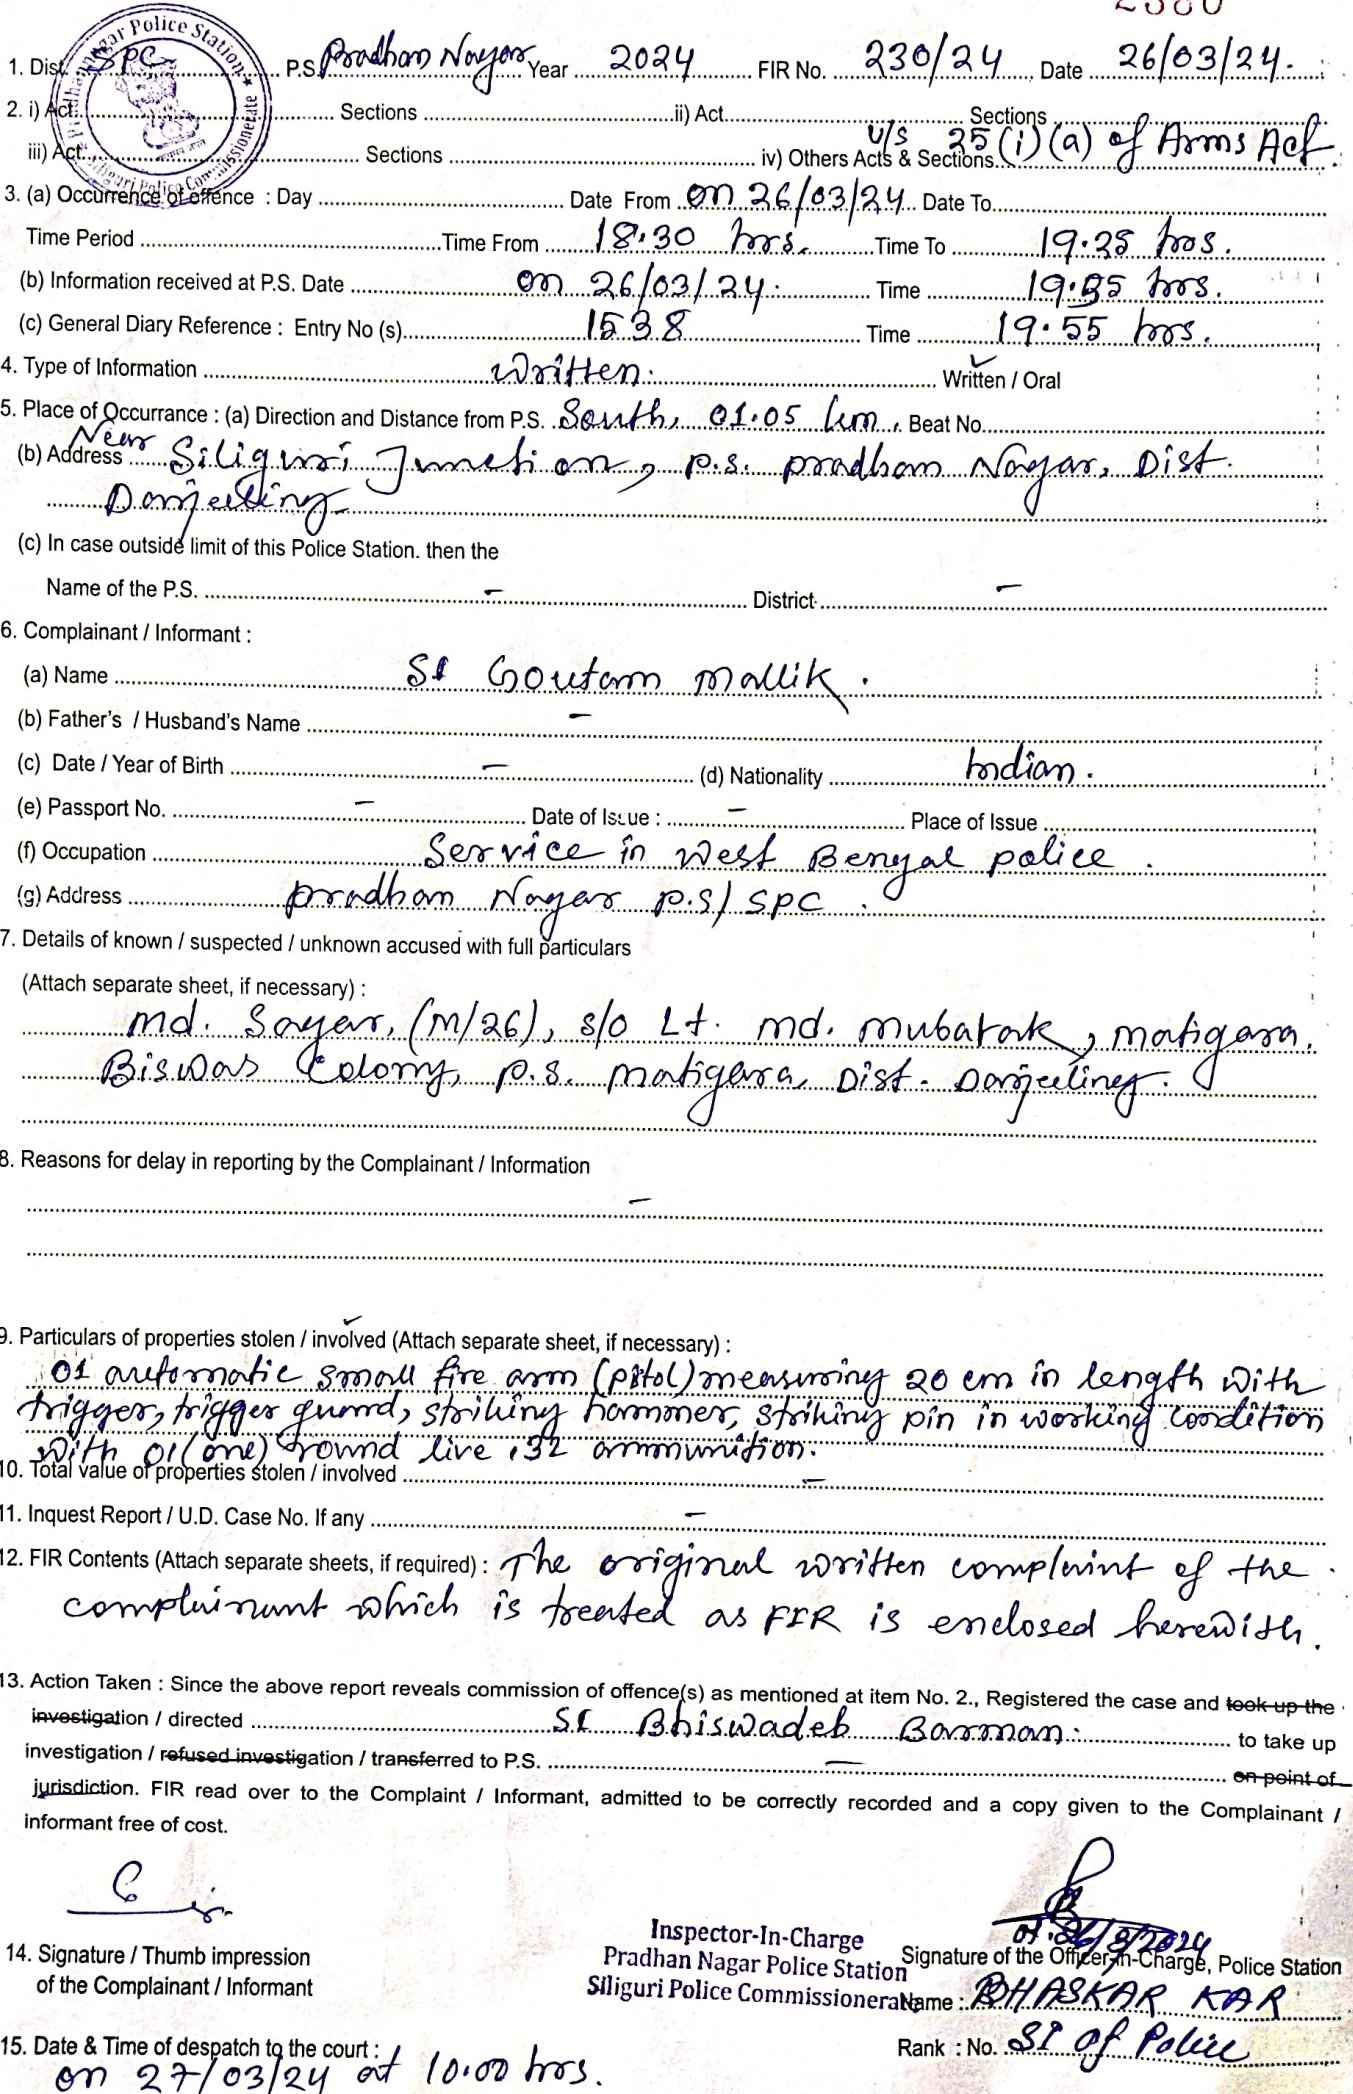 1. Dist. SPC P.S. Pradhan Nagar Year 2024 FIR No. 230/24 Date 26/03/24.
Pradhannagar Police Station ★ Siliguri Police Commissionerate ★
2. i) Act Sections ii) Act Sections
iii) Act Sections iv) Others Acts & Sections u/s 25(i)(a) of Arms Act.
3. (a) Occurrence of offence : Day Date From on 26/03/24 Date To
Time Period Time From 18.30 hrs. Time To 19.25 hrs.
(b) Information received at P.S. Date on 26/03/24. Time 19.55 hrs.
(c) General Diary Reference : Entry No (s) 1538 Time 19.55 hrs.
4. Type of Information Written. Written / Oral
5. Place of Occurrance : (a) Direction and Distance from P.S. South, 01.05 km, Beat No.
(b) Address Near Siliguri Junction, P.S. Pradhan Nagar, Dist.
Darjeeling
(c) In case outside limit of this Police Station. then the
Name of the P.S. – District –
6. Complainant / Informant :
(a) Name SI Goutam Mallik.
(b) Father's / Husband's Name –
(c) Date / Year of Birth – (d) Nationality Indian.
(e) Passport No. – Date of Issue : – Place of Issue
(f) Occupation Service in West Bengal police.
(g) Address Pradhan Nagar P.S/SPC.
7. Details of known / suspected / unknown accused with full particulars
(Attach separate sheet, if necessary) :
Md. Sagar, (M/26), s/o Lt. Md. Mubarak, Matigara.
Biswas Colony, P.S. Matigara, Dist. Darjeeling.
8. Reasons for delay in reporting by the Complainant / Information
–
9. Particulars of properties stolen / involved (Attach separate sheet, if necessary) :
01 automatic small fire arm (pistol) measuring 20 cm in length with
trigger, trigger guard, striking hammer, striking pin in working condition
with 01(one) round live .32 ammunition.
10. Total value of properties stolen / involved –
11. Inquest Report / U.D. Case No. If any –
12. FIR Contents (Attach separate sheets, if required) : The original written complaint of the
complainant which is treated as FIR is enclosed herewith.
13. Action Taken : Since the above report reveals commission of offence(s) as mentioned at item No. 2., Registered the case and took up the
investigation / directed SI Bhiswadeb Barman. to take up
investigation / refused investigation / transferred to P.S. – on point of
jurisdiction. FIR read over to the Complaint / Informant, admitted to be correctly recorded and a copy given to the Complainant /
informant free of cost.
26/3/2024
Inspector-In-Charge
Pradhan Nagar Police Station
Siliguri Police Commissionerate
14. Signature / Thumb impression
of the Complainant / Informant
Signature of the Officer-in-Charge, Police Station
Name : BHASKAR KAR
Rank : No. SI of Police
15. Date & Time of despatch to the court :
on 27/03/24 at 10.00 hrs.